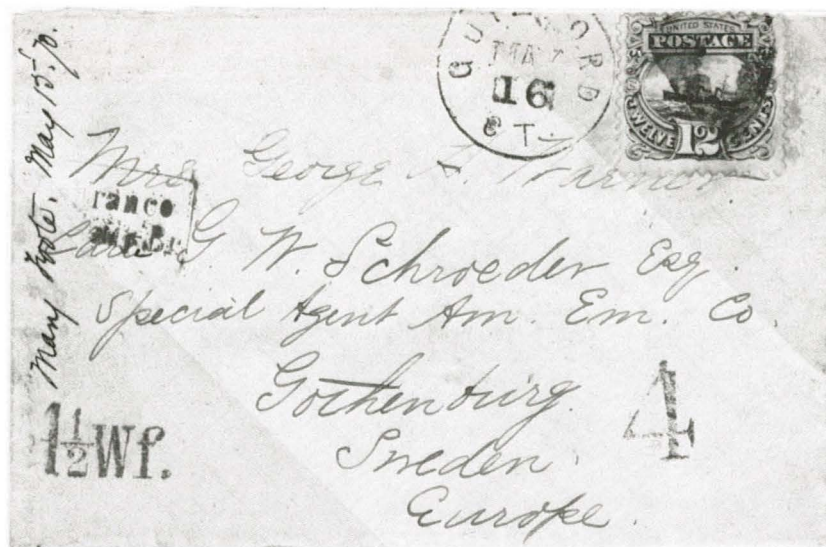 Mary Foote. May 15-70.
GUILFORD
MAY
16
CT.
UNITED STATES
POSTAGE
TWELVE 12 CENTS
Mrs George H. Warner
ranco
Care G W. Schroeder Esq.
Special Agent Am. Em. Co.
Gothenburg.
Sweden.
Europe.
4
1½Wf.